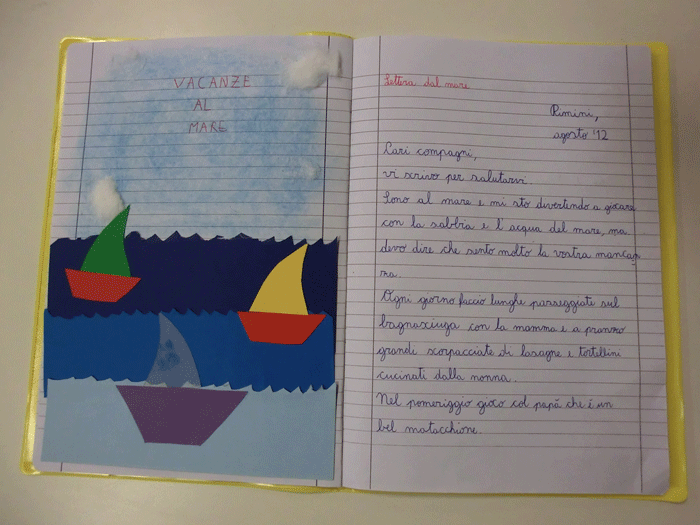 VACANZE
AL
MARE
Lettera dal mare
Rimini,
agosto '12
Cari compagni,
vi scrivo per salutarvi.
Sono al mare e mi sto divertendo a giocare
con la sabbia e l'acqua del mare, ma
devo dire che sento molto la vostra mancan
za.
Ogni giorno faccio lunghe passeggiate sul
bagnasciuga con la mamma e a pranzo
grande scorpacciate di lasagne e tortellini
cucinati dalla nonna.
Nel pomeriggio gioco col papá che é un
bel matacchione.